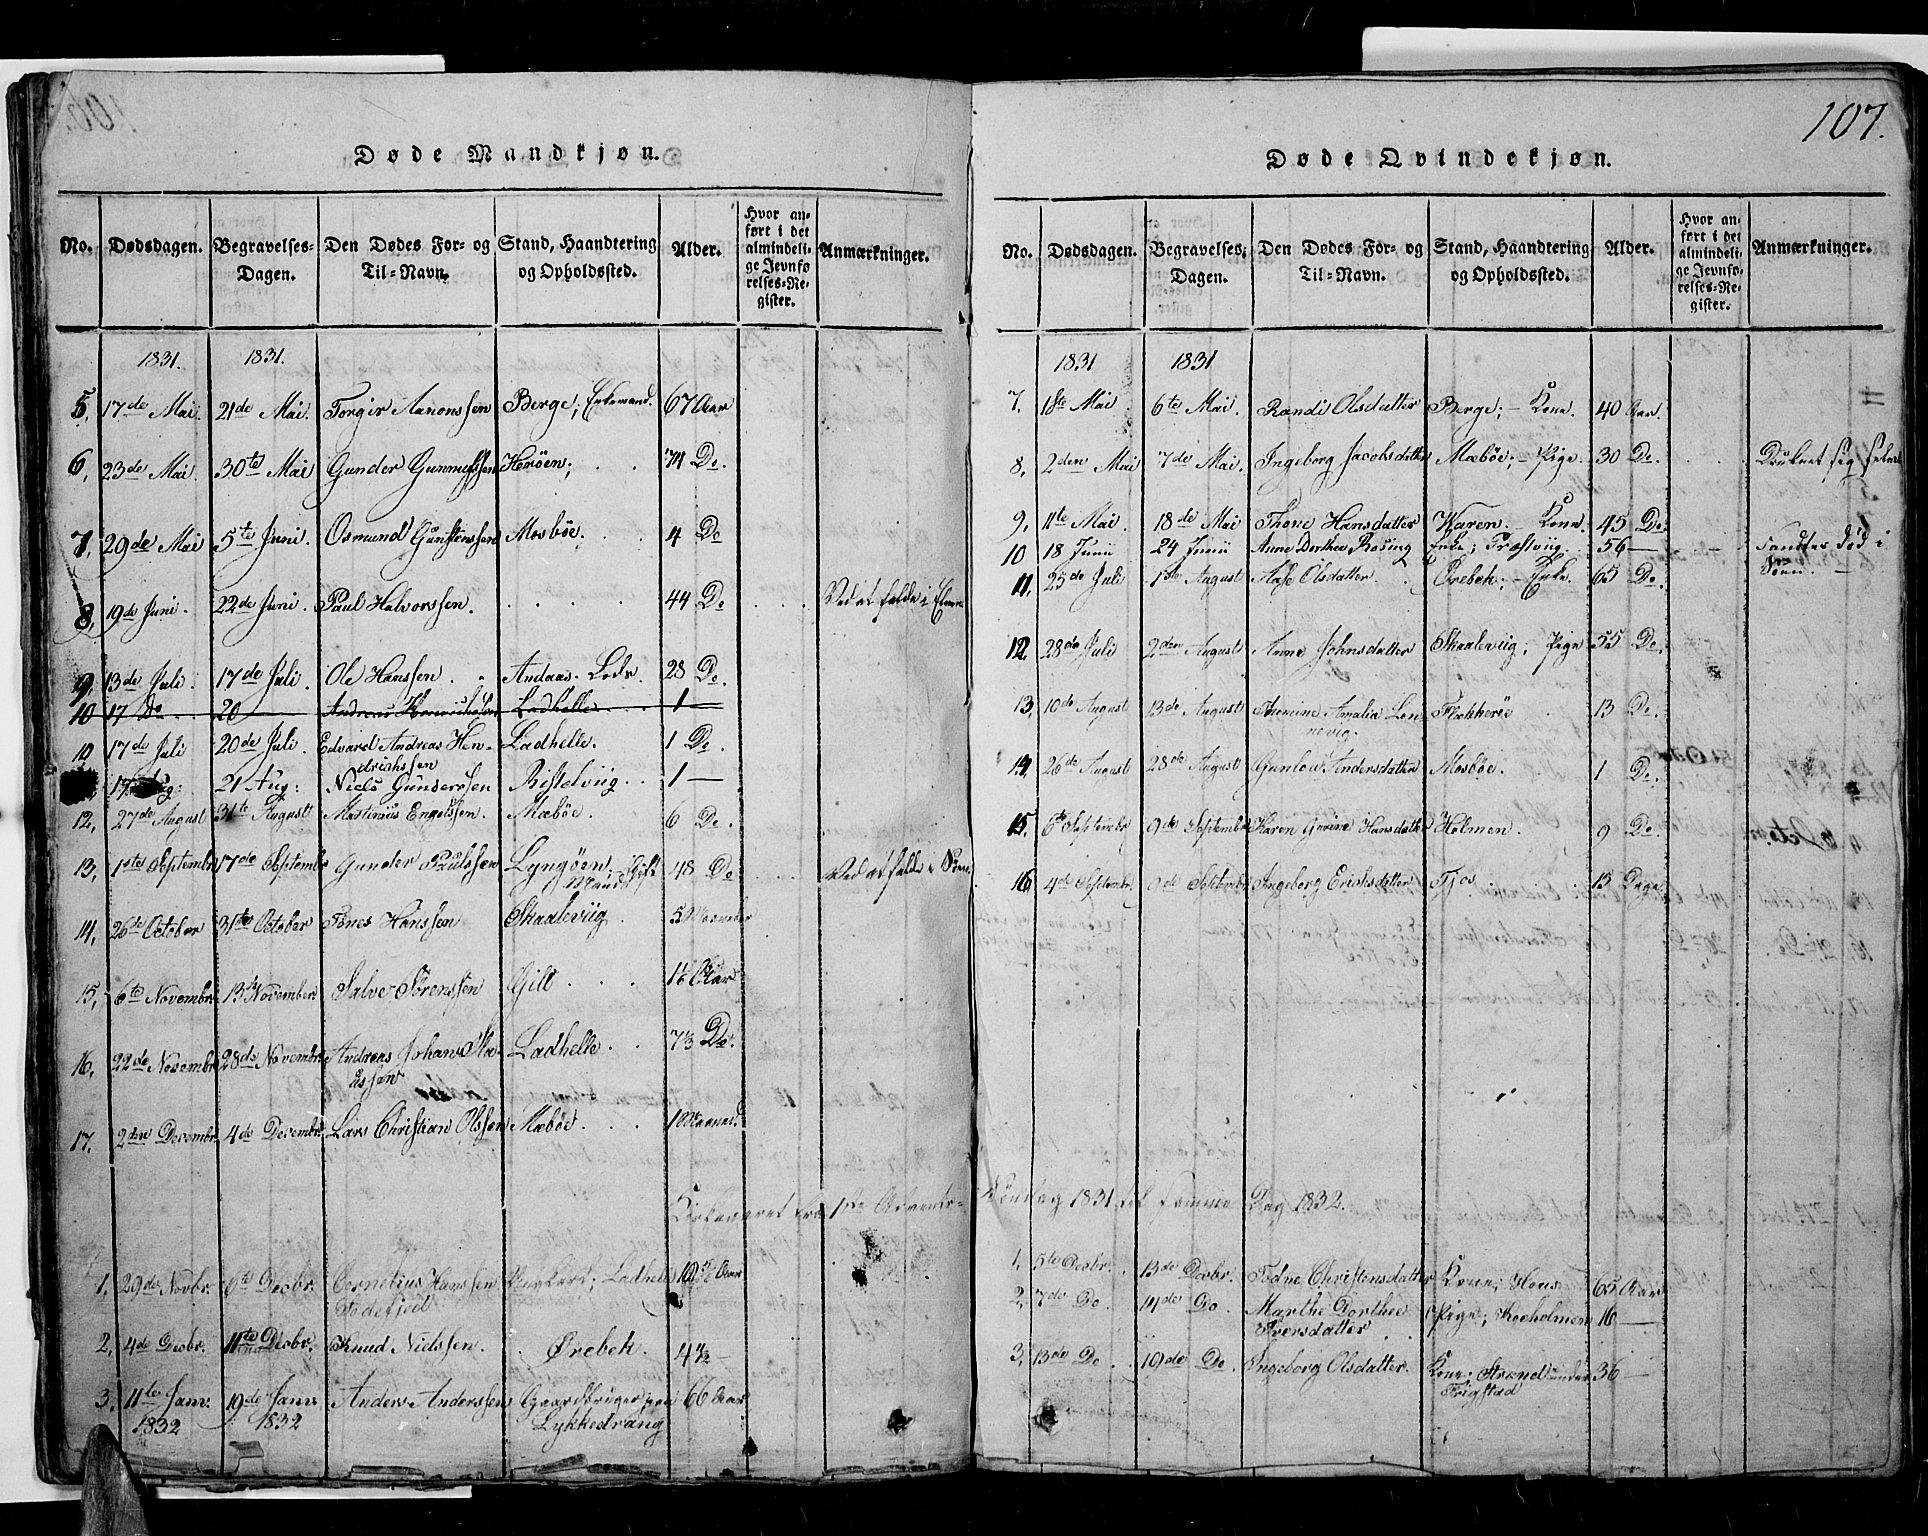 107.
Døde Mandkjøn.
No. Dødsdagen. Begravelses-Dagen. Den Dødes For- og Til-Navn. Stand, Haandtering og Opholdssted. Alder. Hvor anført i det almindelige Jevnførelses-Register. Anmærkninger.
1831. 1831.
5, 17de Mai 21de Mai. Torgir Aanonssen Berge; Enkemand. 67 Aar
6, 23de Mai 30te Mai Gunder Gunnufssen Herøen; 74 Do.
7, 29de Mai 5te Juni Osmund Gunstenssen Mosbøe. 4 Do
8, 19de Juni. 22de Juni Paul Halvorssen. 44 Do Ved at falde i Elven
9, 13de Juli 17de Juli Ole Hanssen Andaas. Lods. 28 Do.
10 17 Do 20 Andreas Ladhelle 1
10 17de Juli 20de Juli Edvard Andreas Hen-
drichssen Ladhelle. 1 Do.
17 Aug: 21 Aug: Niels Gunderssen Ristelviig 1 —
12, 27de August 31te August Martinius Engelssen. Mæbøe. 6 Do.
13, 1ste Septembr 17de Septembr Gunder Poulssen Lyngøen, Gift
Mand 48 Do Ved at falde i Søen
14, 26de October 31te October Tønes Hanssen Skaaleviig 5 Maaneder
15, 6te Novembr. 13de November Salve Sørenssen Gilt Aar
16, 22de Novembr 28de Novembr. Andreas Johan
ussen Ladhelle 7 1/3 Do.
17. 2den Decembr. 4de Decembr. Lars Christian Olssen Mæbøe 1 Maaned.
Kirkeaaret fra 1ste Advents-
1, 29de Novbr. 6te Decbr. Cornelius Hanssen Ladhelle Aar
Todefjed
2, 4de Decbr. 11te Decbr. Knud Nielssen. Ørebek. 4 1/2 —
3, 11te Janr. 19de Janr Anders Anderssen Gaardbruger paa 66 Aar
1832 1832 Lykkedrang
Døde Qvindekjøn.
No. Dødsdagen. Begravelses-Dagen. Den Dødes For- og Til-Navn. Stand, Haandtering og Opholdssted. Alder. Hvor anført i det almindelige Jevnførelses-Register. Anmærkninger.
1831 1831
7. 1ste Mai 6te Mai. Randi Olsdatter Berge; – Kone. 40 Aar.
8, 2den Mai 7de Mai. Ingeborg Jacobsdatter Mæbøe; – Pige. 30 Do. Druknet sig selv
9, 11te Mai. 18de Mai Thone Hansdatter Waren. – Kone. 45 Do
10 18 Junii 24 Junii Anne Dorthea Rosing Enke; Præstviig. 56 — Fandtes død i
Søen.
11, 25de Juli 1ste August Aase Olsdatter. Ørebek; – Enke. 65 Do.
12. 28de Juli 2den August Anne Johnsdatter Skaaleviig; Pige. 55 Do.
13, 10de August 13de August Thomine Amalia Len-
nevig. Flekkerøe 13 Do.
14. 26de August 28de August Gunlou Andersdatter Mosbøe. 1 Do.
15. 6te Septembr 9de Septembr Karen Gurine Hansdatter Holmen. 9 Do.
16 4de Septembr. Septembr Ingeborg Erichsdatter Tjos 13 Dage
Søndag 1831 til samme Dag 1832.
1, 5te Decbr. 13de Decbr. Todne Christensdatter Kone; Høns 65 Aar
2, 7de Do 14de Do Marthe Dorthee
Iversdatter Pige; Koeholmen 16 —
3, 13de Do 19de Do. Ingeborg Olsdatter. Kone; Strand under
Frigstad 36 —